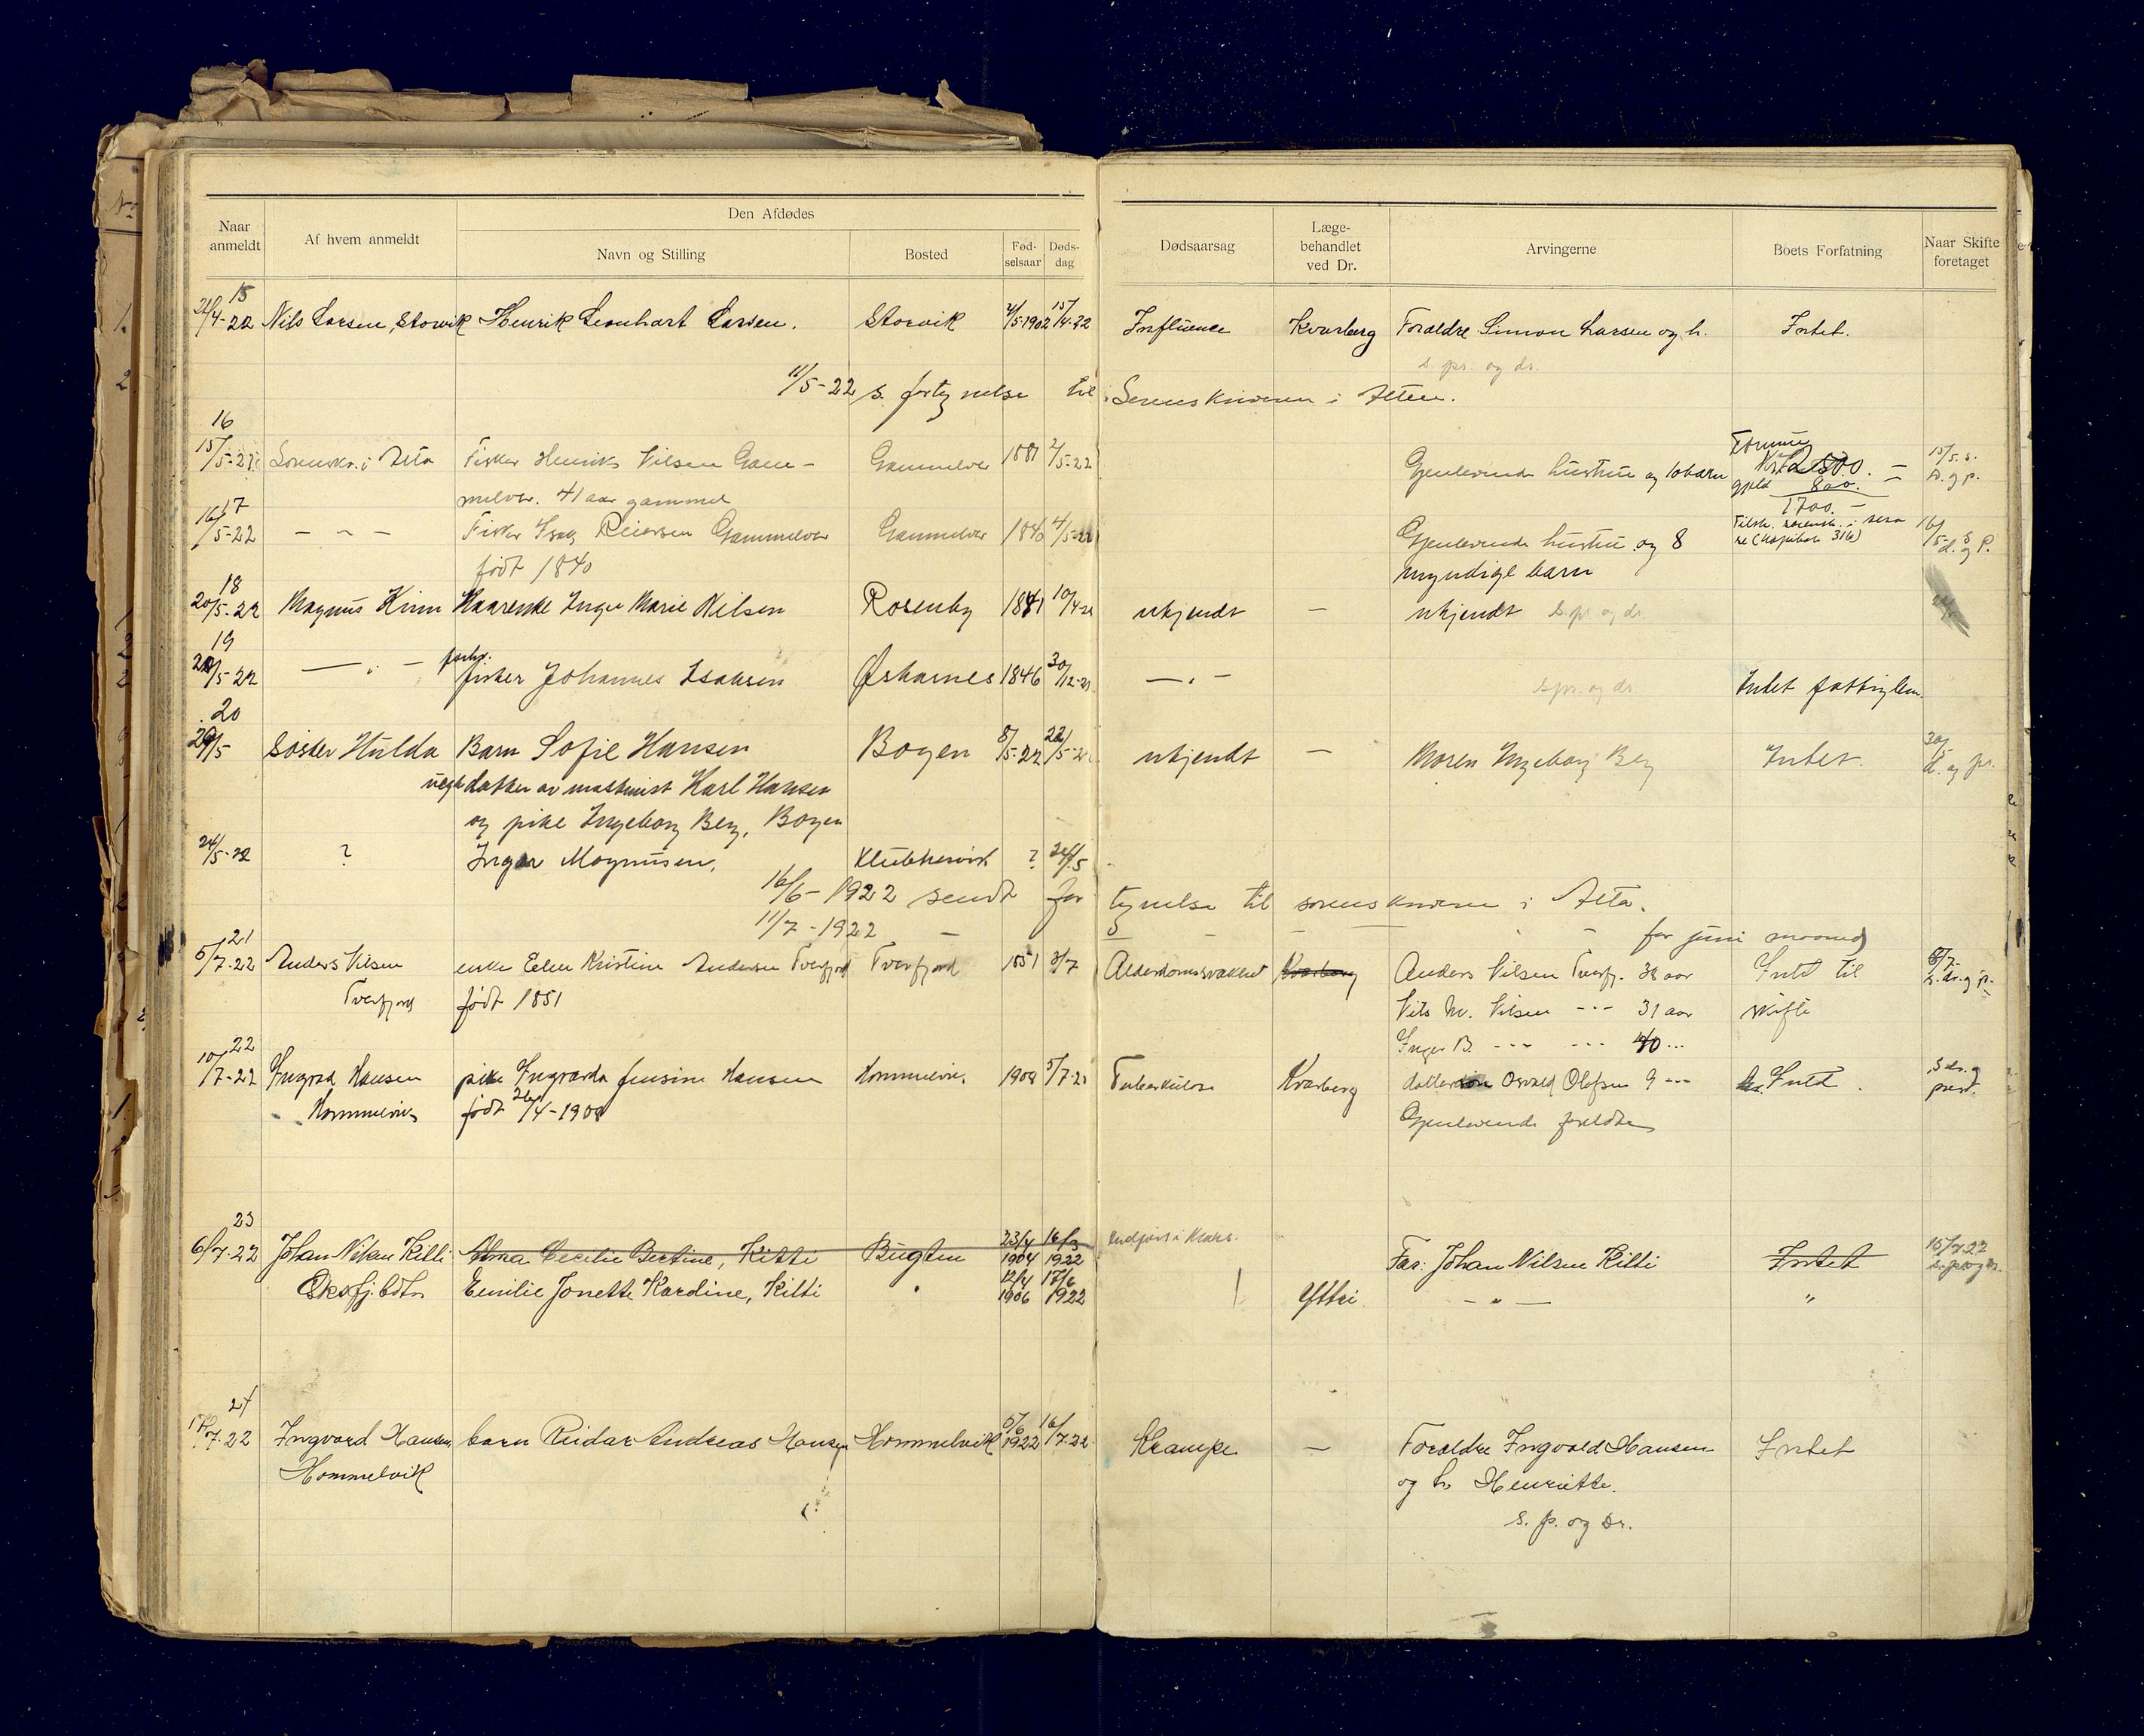 Naar anmeldt
Af hvem anmeldt
Den Afdødes
Navn og Stilling
Bosted
Fød-selsaar
Døds-dag
Dødsaarsag
Læge-behandlet ved Dr.
Arvingerne
Boets Forfatning
Naar Skifte foretaget
15
21/4-22 Nils Larsen, Storvik Henrik Leonhart Larsen. Storvik 2/5-1902 15/4-22 Influence Kvarberg Foreldre Simon Larsen og h. Intet.
s. pr. og dr.
11/5-22 s. fortegnelse til Sorenskriveren i Alten.
16
15/5-22 Sorenskr. i Alta Fisker Henrik Nilsen Gam- Gammelvær 1881 2/5-22 Gjenlevende hustru og 10 barn Formue Kr. 2500. — 15/5. s.
melvær. 41 aar gammel gjeld 800. — d. og p.
1700. —
17
16/5-22 - " - Fisker Isak Reiersen Gammelvær Gammelvær 1840 4/5-22 Gjenlevende hustru og 8 16/5 d. og p.
født 1840 myndige barn
18
20/5-22 Magnus Kinn Maarenke Inger Marie Nilsen Rosenby 1841 10/4-22 ukjendt — ukjendt s. pr. og dr.
19
20/5-22 — " — forhv. fisker Johannes Isaksen Øksnarnes 1846 30/12-21 — " — s. pr. og dr. Intet fattiglem.
20
29/5 Søster Hulda Barn Sofie Hansen Bogen 8/5-22 22/5-22 ukjendt — Moren Ingeborg Berg Intet. 30/5 d. og pr.
uegte datter av maskinist Karl Hansen
og pike Ingeborg Berg, Bogen
24/5-22 ? Inger Magnusen, Klubbenvik ? 24/5
16/6-1922 sendt fortegnelse til sorenskriveren i Alta.
11/7-1922 — — — — for juni maaned
21
5/7-22 Anders Nilsen enke Ellen Kristine Andersen Tverfjord Tverfjord 1851 3/7 Alderdomssvakhet Kvarberg Anders Nilsen Tverfj. 38 aar Intet til 8/7-
Tverfjord født 1851 Nils M. Nilsen - - - 31 aar skifte s. dr. og p.
Inger B. - - - - - - 40 ...
22
10/7-22 Ingvad Hansen pike Ingvarda Jensine Hansen Hommelvik 1908 5/7-22 Tuberkulose Kvarberg dattersøn Osvald Olofsen 9 - - - Intet. s. dr. og
Hommelvik født 26/4-1908 Gjenlevende foreldre prest.
23
6/7-22 Johan Nilsen Kitti Alma Cecilie Bertine, Kitti Bugten 23/4 1904 16/3 1922 Far: Johan Nilsen Kitti Intet 15/7 22
Øksfj. bdtn Emilie Jonette Kardine, Kitti " 12/4 1906 17/6 1922 Ytteri — " — " s. p. og dr.
24
17/7-22 Ingvard Hansen barn Reidar Andreas Hansen Hommelvik 5/6 1922 16/7-22 Krampe — Foreldre Ingvald Hansen Intet
Hommelvik og h. Henriette.
s. p. og Dr.